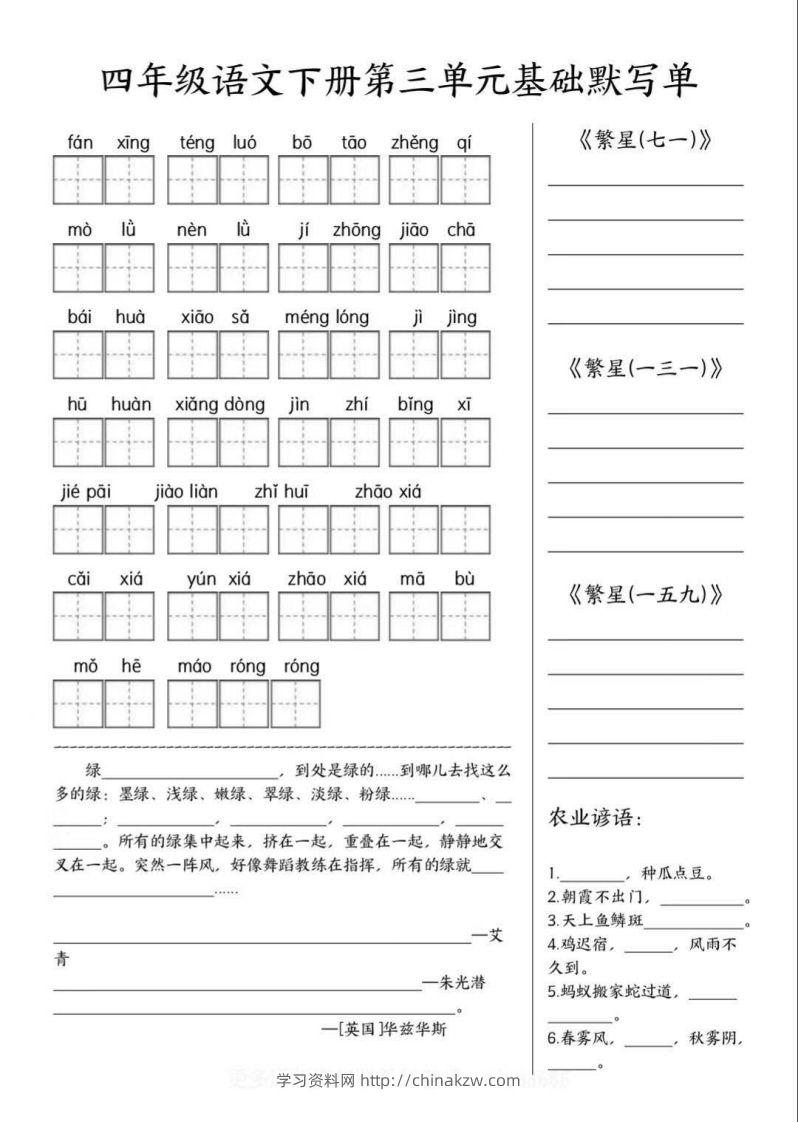 四年级语文下册第三单元基础默写单
fán xīng téng luó bō tāo zhěng qí
mò lǜ nèn lǜ jí zhōng jiāo chā
bái huà xiāo sǎ méng lóng jì jìng
hū huàn xiǎng dòng jìn zhí bǐng xī
jié pāi jiào liàn zhǐ huī zhāo xiá
cǎi xiá yún xiá zhāo xiá mā bù
mǒ hē máo róng róng
绿____________________，到处是绿的......到哪儿去找这么
多的绿：墨绿、浅绿、嫩绿、翠绿、淡绿、粉绿......________、__
______；___________，___________，___________，______
______。所有的绿集中起来，挤在一起，重叠在一起，静静地交
叉在一起。突然一阵风，好像舞蹈教练在指挥，所有的绿就____
____________________......
____________________—艾
青
____________________—朱光潜
____________________。
—[英国]华兹华斯
《繁星(七一)》
《繁星(一三一)》
《繁星(一五九)》
农业谚语：
1.________，种瓜点豆。
2.朝霞不出门，__________。
3.天上鱼鳞斑____________。
4.鸡迟宿，______，风雨不
久到。
5.蚂蚁搬家蛇过道，______
________。
6.春雾风，______，秋雾阴，
______。
学习资料网 http://chinakzw.com